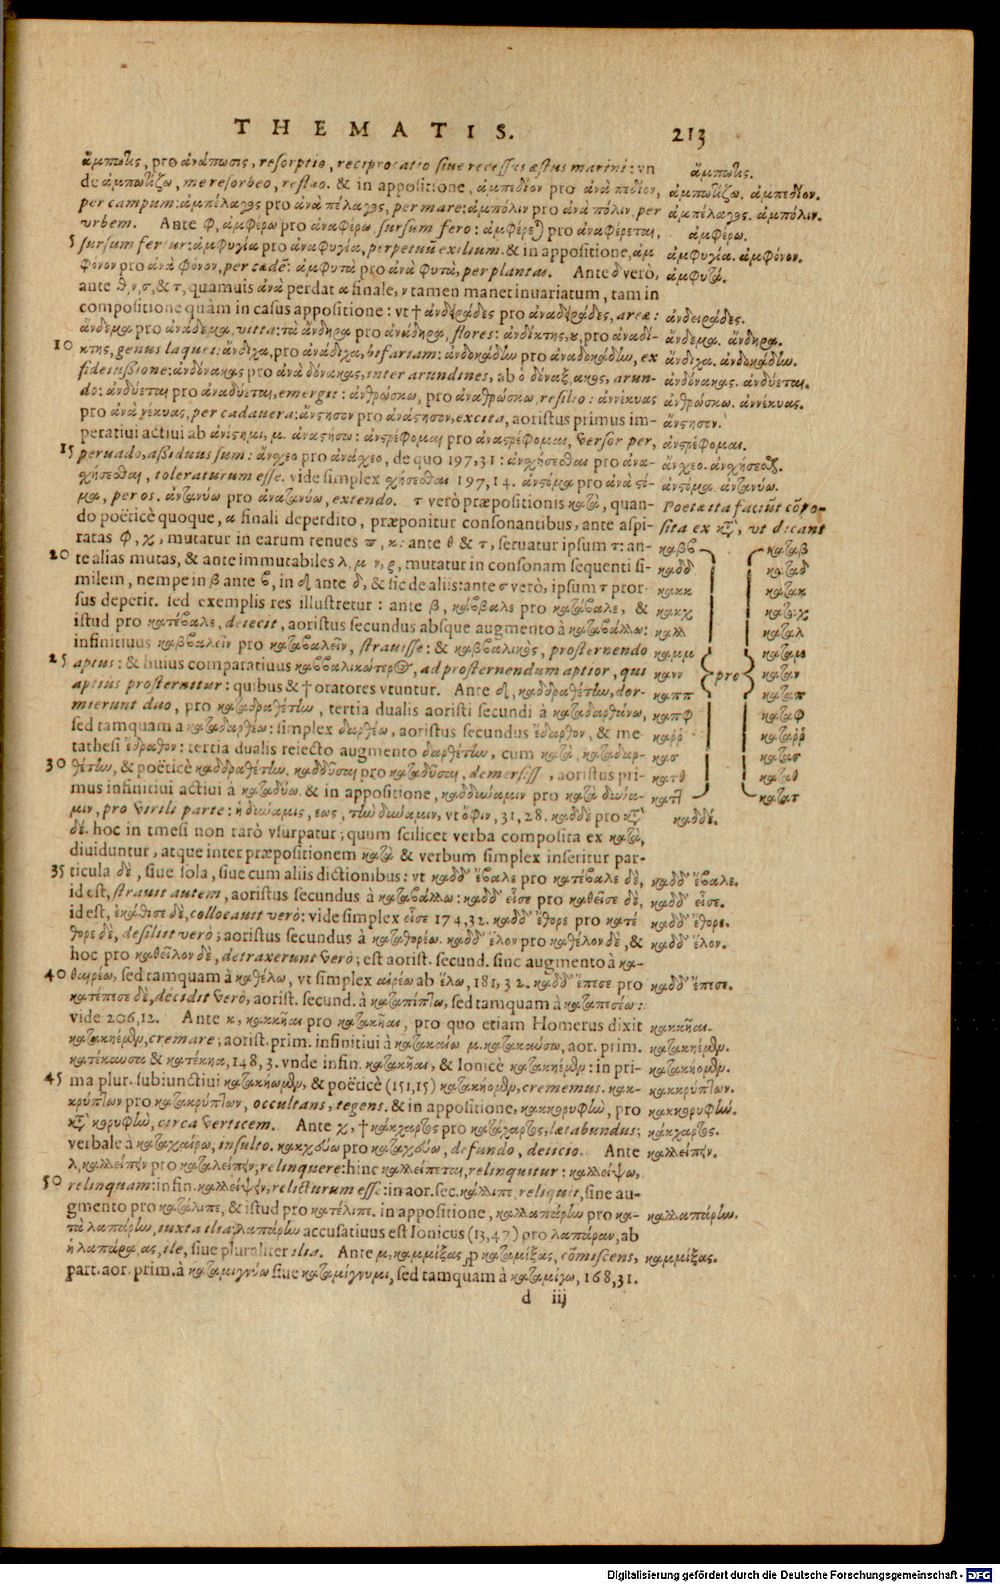 THEMATIS. 213
ἄμπωτις, pro ἀνάπωσις, resorptio, reciprocatio siue recessus æstus marini: vn
de ἀμπωτίζω, me resorbeo, refluo. & in appositione, ἀμπεδίον pro ἀνὰ πεδίον,
per campum: ἀμπέλαγος pro ἀνὰ πέλαγος, per mare: ἀμπόλιν pro ἀνὰ πόλιν, per
vrbem. Ante φ, ἀμφέρω pro ἀναφέρω, sursum fero: ἀμφέρεται pro ἀναφέρεται,
5 sursum fertur: ἀμφυγία pro ἀναφυγία, perpetuũ exilium. & in appositione, ἀμ
φόνον pro ἀνὰ φόνον, per cædẽ: ἀμφυτὰ pro ἀνὰ φυτὰ, per plantas. Ante δ verò,
ante θ, ν, σ, & τ, quamuis ἀνὰ perdat α finale, ν tamen manet inuariatum, tam in
compositione quàm in casus appositione: vt † ἀνδειράδες pro ἀναδειράδες, areæ:
ἄνδεμα pro ἀνάδεμα, vitta: τὰ ἄνδηρα pro ἀνάδηρα, flores: ἀνδίκτης, ου, pro ἀναδί-
10 κτης, genus laquei: ἄνδιχα, pro ἀνάδιχα, bifariam: ἀνδοκάδην pro ἀναδοκάδην, ex
fideiussione: ἀνδόνακας pro ἀνὰ δόνακας, inter arundines, ab ὁ δόναξ, ακος, arun-
do: ἀνδύεται pro ἀναδύεται, emergit: ἀνθρώσκω, pro ἀναθρώσκω, resilio: ἀννέκυας
pro ἀνὰ νέκυας, per cadauera: ἄνστησον pro ἀνάστησον, excita, aoristus primus im-
peratiui actiui ab ἀνίστημι, μ. ἀναστήσω: ἀνστρέφομαι pro ἀναστρέφομαι, versor per,
15 peruado, assiduus sum: ἄνσχεο pro ἀνάσχεο, de quo 197,31: ἀνσχήσεσθαι pro ἀνα-
σχήσεσθαι, toleraturum esse. vide simplex σχήσεσθαι 197,14. ἀνστόμα pro ἀνὰ στό-
μα, per os. ἀντανύω pro ἀνατανύω, extendo. τ verò præpositionis κατὰ, quan-
do poëticè quoque, α finali deperdito, præponitur consonantibus, ante aspi-
ratas φ, χ, mutatur in earum tenues π, κ: ante θ & τ, seruatur ipsum τ: an-
20 te alias mutas, & ante immutabiles λ, μ, ν, ρ, mutatur in consonam sequenti si-
milem, nempe in β ante β, in δ ante δ, & sic de aliis: ante σ verò, ipsum τ pror-
sus deperit. sed exemplis res illustretur: ante β, κάββαλε pro κατάβαλε, &
istud pro κατέβαλε, deiecit, aoristus secundus absque augmento à καταβάλλω:
infinitiuus καββαλεῖν pro καταβαλεῖν, strauisse: & καββαλικὸς, prosternendo
25 aptus: & huius comparatiuus καββαλικώτερος, ad prosternendum aptior, qui
aptius prosternitur: quibus & † oratores vtuntur. Ante δ, καδδραθέτην, dor-
mierunt duo, pro καταδραθέτην, tertia dualis aoristi secundi à καταδαρθάνω,
sed tamquam a καταδαρθέω: simplex δαρθέω, aoristus secundus ἔδαρθον, & me-
tathesi ἔδραθον: tertia dualis reiecto augmento δαρθέτην, cum κατὰ, καταδαρ-
30 θέτην, & poëticè καδδραθέτην. καδδῦσαι pro καταδῦσαι, demersiss, aoristus pri-
mus infinitiui actiui à καταδύω. & in appositione, καδδύναμιν pro κατὰ δύνα-
μιν, pro virili parte: ἡ δύναμις, εως, τὴν δύναμιν, vt ὄφιν, 31,28. καδδὲ pro κατὰ
δὲ. hoc in tmesi non rarò vsurpatur; quum scilicet verba composita ex κατὰ,
diuiduntur, atque inter præpositionem κατὰ & verbum simplex inseritur par-
35 ticula δὲ, siue sola, siue cum aliis dictionibus: vt καδδ' ἔβαλε pro κατέβαλε δὲ,
id est, strauit autem, aoristus secundus à καταβάλλω: καδδ' εἷσε pro καθεῖσε δὲ,
id est, ἐκάθισε δὲ, collocauit verò: vide simplex εἷσε 174,32. καδδ' ἔθορε pro κατέ
θορε δὲ, desiluit verò; aoristus secundus à καταθορέω. καδδ' ἕλον pro καθέλον δὲ, &
hoc pro καθεῖλον δὲ, detraxerunt verò; est aorist. secund. sine augmento à κα-
40 θαιρέω, sed tamquam à καθέλω, vt simplex αἱρέω ab ἕλω, 181,32. καδδ' ἔπεσε pro
κατέπεσε δὲ, decidit verò, aorist. secund. à καταπίπτω, sed tamquam à καταπεσέω:
vide 206,12. Ante κ, κακκῆαι pro κατακῆαι, pro quo etiam Homerus dixit
κατακηέμεν, cremare; aorist. prim. infinitiui à κατακαίω μ. κατακαύσω, aor. prim.
κατέκαυσα & κατέκηα, 148,3. vnde infin. κατακῆαι, & Ionicè κατακηέμεν: in pri-
45 ma plur. subiunctiui κατακήωμεν, & poëticè (151,15) κατακήομεν, crememus. κακ-
κρύπτων pro κατακρύπτων, occultans, tegens. & in appositione, κακκορυφὴν, pro
κατὰ κορυφὴν, circa verticem. Ante χ, † κάκχαρτος pro κατάχαρτος, lætabundus;
verbale à καταχαίρω, insulto. κακχεύω pro καταχεύω, defundo, deiicio. Ante
λ, καλλείπειν pro καταλείπειν, relinquere: hinc καλλείπεται, relinquitur: καλλείψω,
50 relinquam: infin. καλλείψειν, relicturum esse: in aor. sec. κάλλιπε, reliquit, sine au-
gmento pro κατάλιπε, & istud pro κατέλιπε. in appositione, καλλαπάρην pro κα-
τὰ λαπάρην, iuxta ilia: λαπάρην accusatiuus est Ionicus (13,47) pro λαπάραν, ab
ἡ λαπάρα, ας, ile, siue pluraliter ilia. Ante μ, καμμίξας pro καταμίξας, cõmiscens,
part. aor. prim. à καταμιγνύω siue καταμίγνυμι, sed tamquam à καταμίγω, 168,31.
d iij
ἄμπωτις.
ἀμπωτίζω. ἀμπεδίον.
ἀμπέλαγος. ἀμπόλιν.
ἀμφέρω.
ἀμφυγία. ἀμφόνον.
ἀμφυτά.
ἀνδειράδες.
ἄνδεμα. ἄνδηρα.
ἄνδιχα. ἀνδοκάδην.
ἀνδόνακας. ἀνδύεται.
ἀνθρώσκω. ἀννέκυας.
ἄνστησον.
ἀνστρέφομαι.
ἄνσχεο. ἀνσχήσεσθαι.
ἀνστόμα. ἀντανύω.
Poetæ ita faciũt cõpo-
sita ex κατὰ, vt dicant
καββ καταβ
καδδ καταδ
κακκ κατακ
κακχ καταχ
καλλ καταλ
καμμ καταμ
κανν pro καταν
καππ καταπ
καπφ καταφ
καρρ καταρρ
κασ κατασ
κατθ καταθ
καττ κατατ
καδδέ.
καδδ' ἔβαλε.
καδδ' εἷσε.
καδδ' ἔθορε.
καδδ' ἕλον.
καδδ' ἔπεσε.
κακκῆαι.
κατακηέμεν.
κατακήομεν.
κακκρύπτων.
κακκορυφήν.
κάκχαρτος.
καλλείπειν.
καλλαπάρην.
καμμίξας.
Digitalisierung gefördert durch die Deutsche Forschungsgemeinschaft - DFG